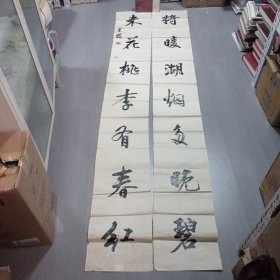 将暖湖烟多晚碧
未花桃李有春红